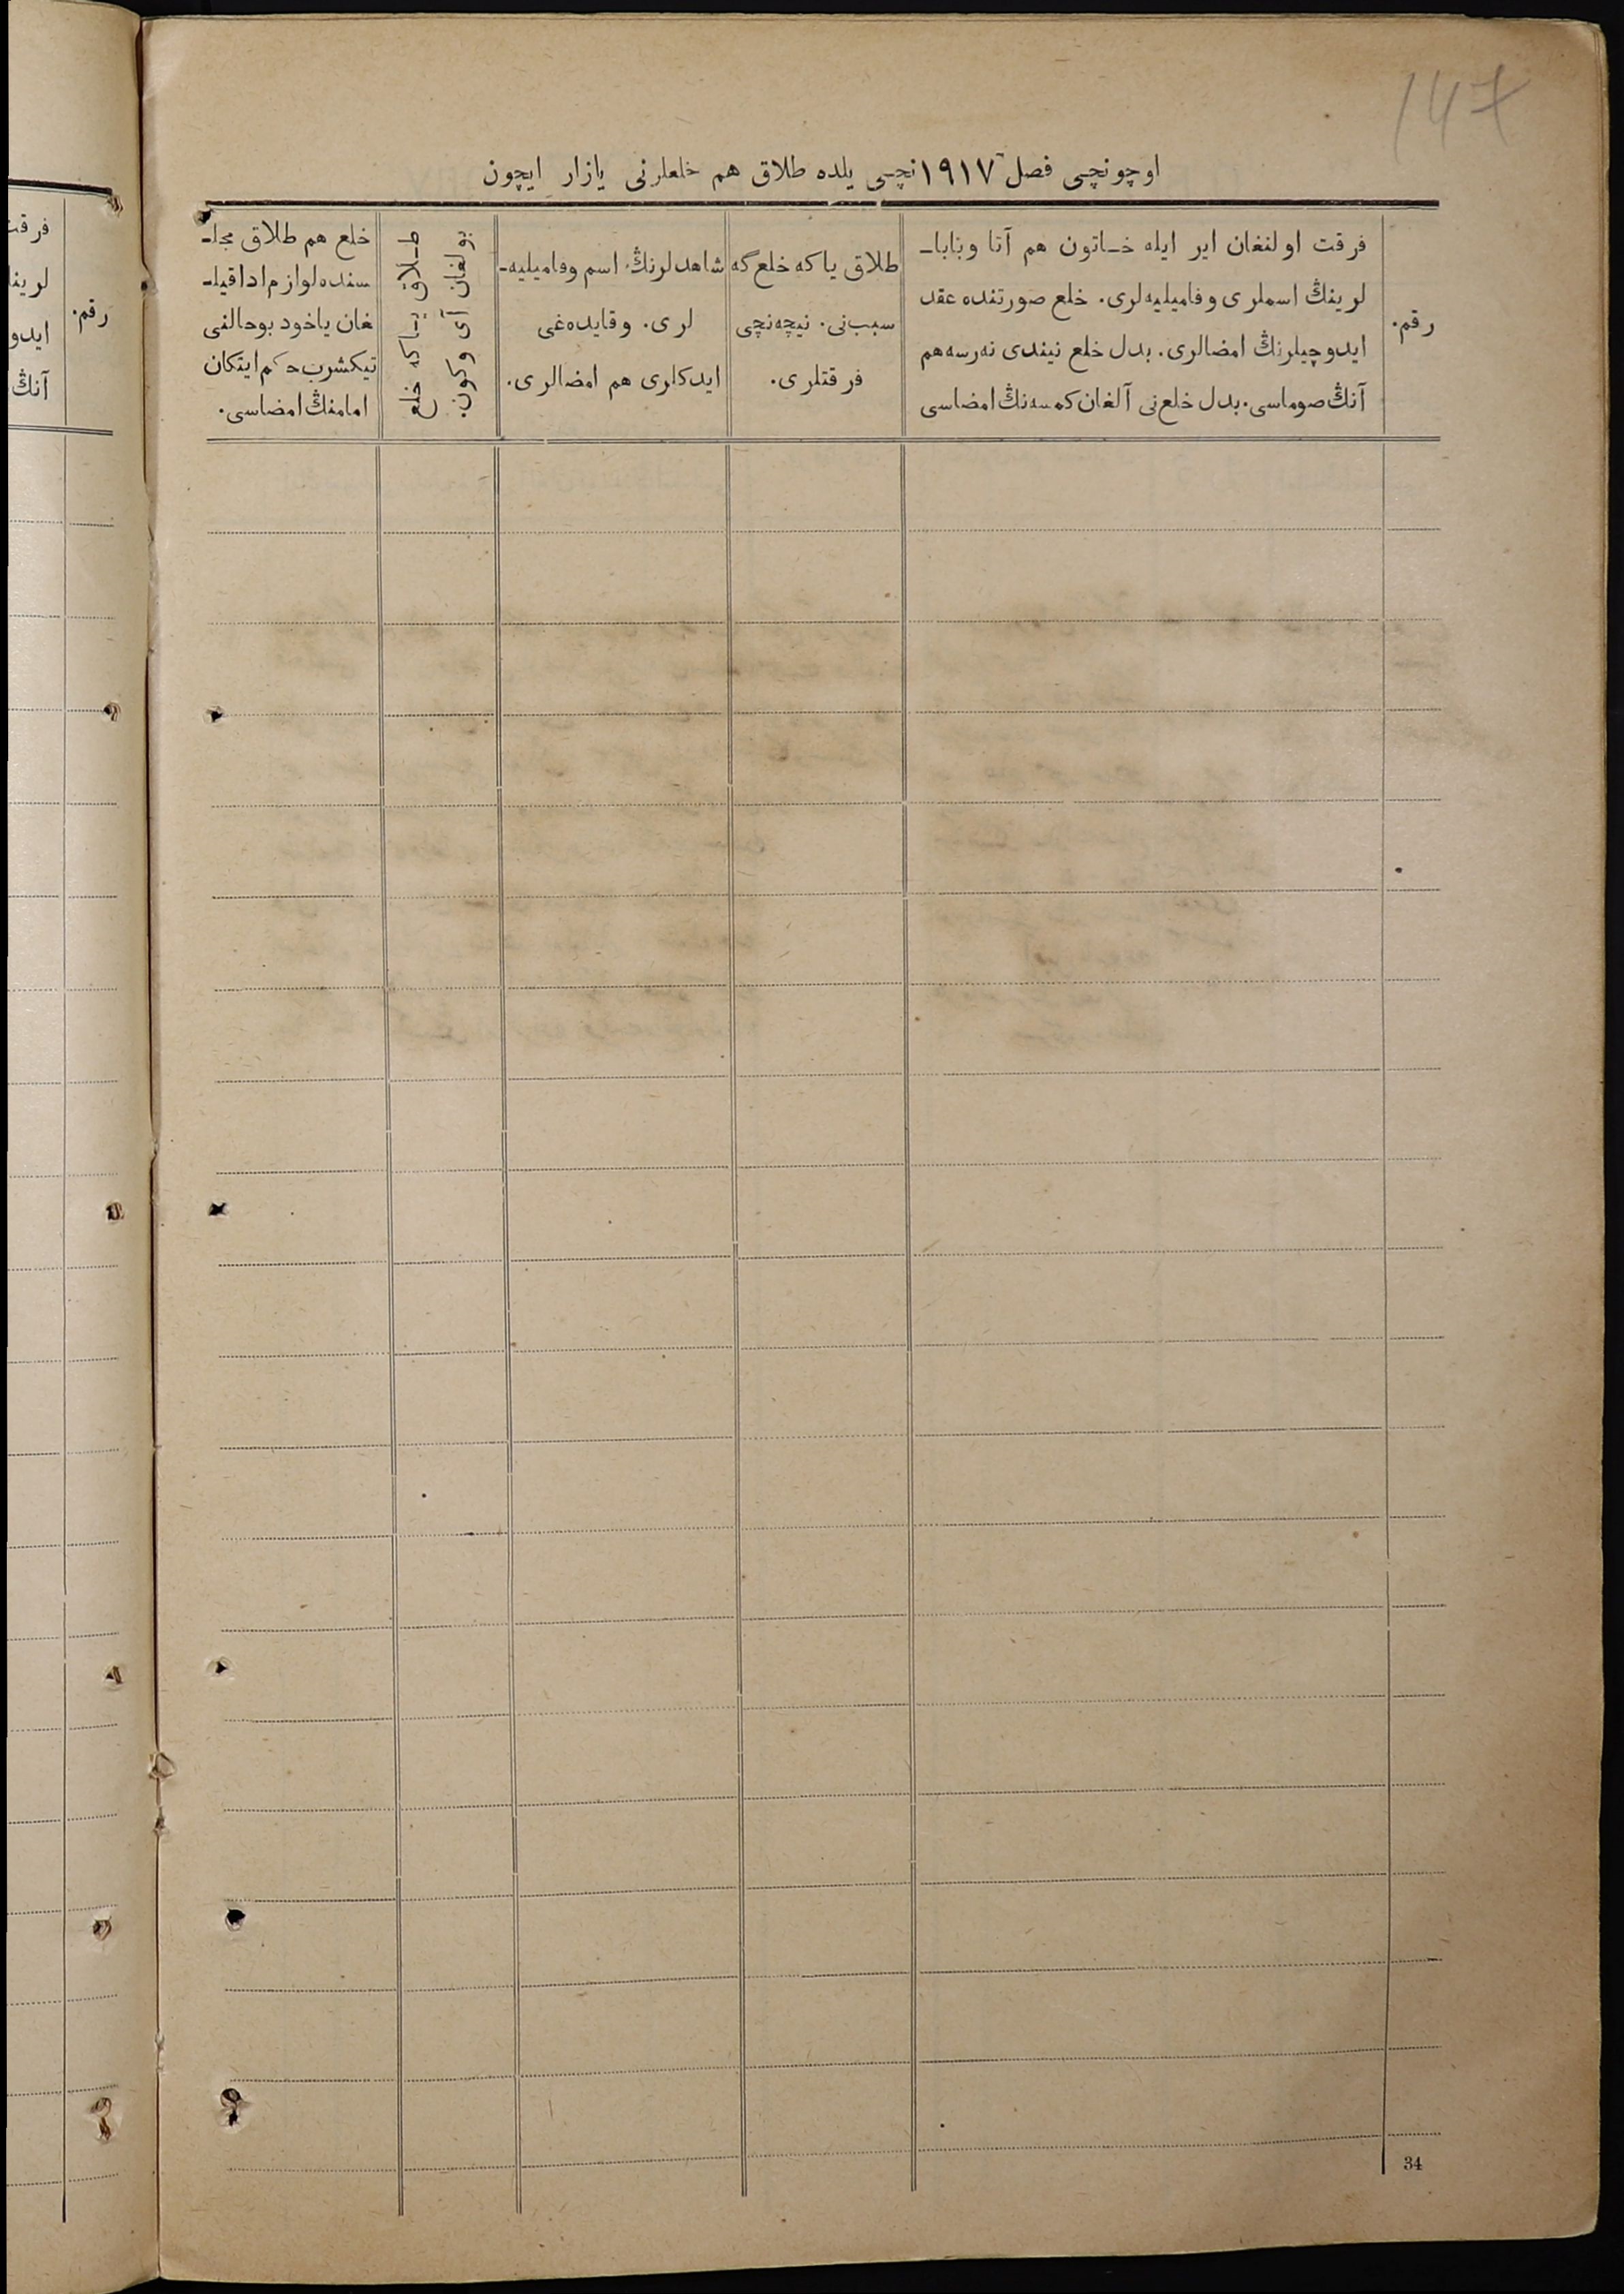 147
اوچونچی فصل ۱۹۱۷نچی یلده طلاق هم خلعلرنی یازار ایچون
رقم.
فرقت اولنغان ایر ایله خـاتون هم آتا وبابا-
لرینڭ اسملری وفامیلیه‌لری. خلع صورتنده عقد
ایدوچیلرنڭ امضالری. بدل خلع نیندی نه‌رسه‌هم
آنڭ صوماسی. بدل خلع‌نی آلغان کمسه‌نڭ امضاسی
طلاق یاکه خلع‌گه
سبب‌نی. نیچه‌نچی
فرقتلری.
شاهدلرنڭ اسم وفامیلیه-
لری. وقایده‌غی
ایدکلری هم امضالری.
طـلاق یـاکه خلع
بولغان آی وکون.
خلع هم طلاق مجل-
سنده لوازم اداقیل-
غان یاخود بوحالنی
تیکشرب حکم ایتکان
امامنڭ امضاسی.
34
رقم.
فرقت
لرینڭ
ایدو
آنڭ